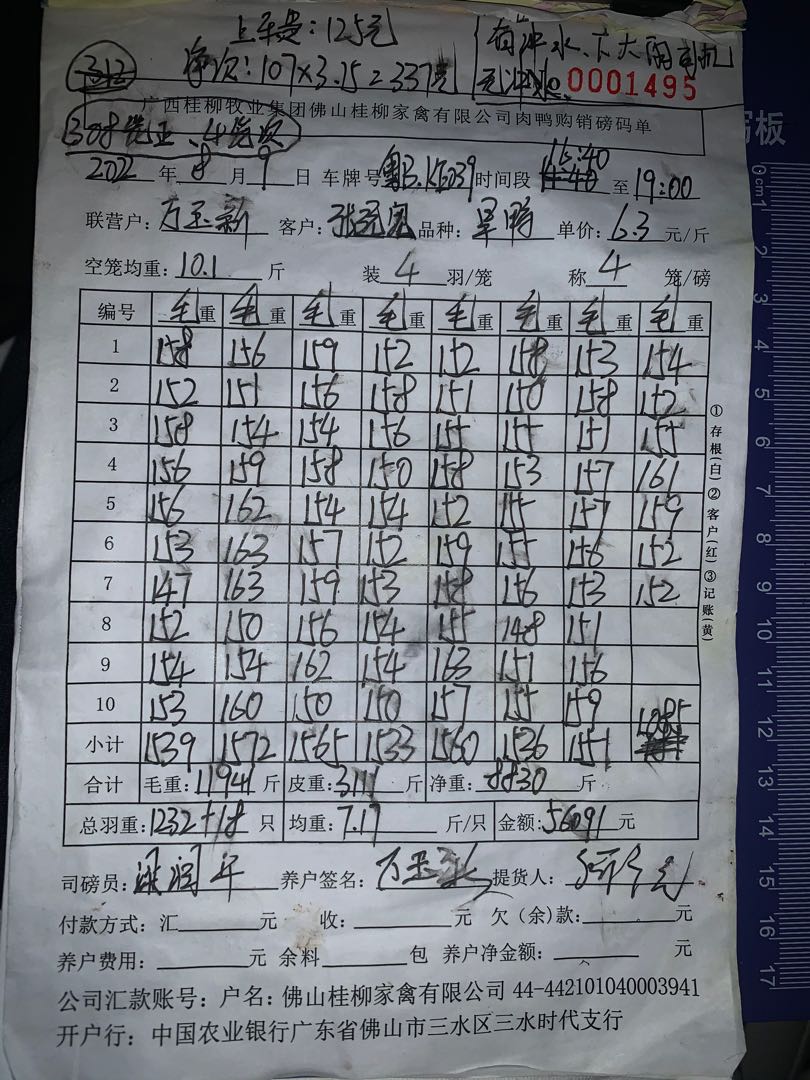 上车费：125元
净欠：107×3.15=337元
有冲水、下大雨 司机
312
№0001495
广西桂柳牧业集团佛山桂柳家禽有限公司肉鸭购销磅码单
308
2022年8月9日 车牌号 时间段 16:40 14:40 至 19:00
联营户：万玉新 客户： 品种： 单价：6.3元/斤
空笼均重：10.1斤 装4羽/笼 称4笼/磅
编号 毛重 毛重 毛重 毛重 毛重 毛重 毛重 毛重
1 158 156 159 152 152 158 153 154
2 152 151 156 158 151 150 158 152
3 158 154 154 156 155 155 151 155
4 156 159 158 150 158 153 157 161
5 156 162 154 154 152 155 157 159
6 153 163 157 152 159 155 156 152
7 147 163 159 153 158 156 153 152
8 152 150 156 154 155 148 151
9 154 154 162 154 163 151 156
10 153 160 150 150 157 155 159
小计 1539 1572 1565 1533 1560 1536 1551 1085
合计 毛重：11941斤 皮重：3111斤 净重：8830斤
总羽重：1232+18只 均重：7.17斤/只 金额：56091元
司磅员：梁润平 养户签名：万玉新 提货人：
付款方式：汇 元 收： 元 欠（余）款： 元
养户费用： 元 余料 包 养户净金额： 元
公司汇款账号：户名：佛山桂柳家禽有限公司 44-442101040003941
开户行：中国农业银行广东省佛山市三水区三水时代支行
①存根(白)②客户(红)③记账(黄)
写板
0cm1 2 3 4 5 6 7 8 9 10 11 12 13 14 15 16 17